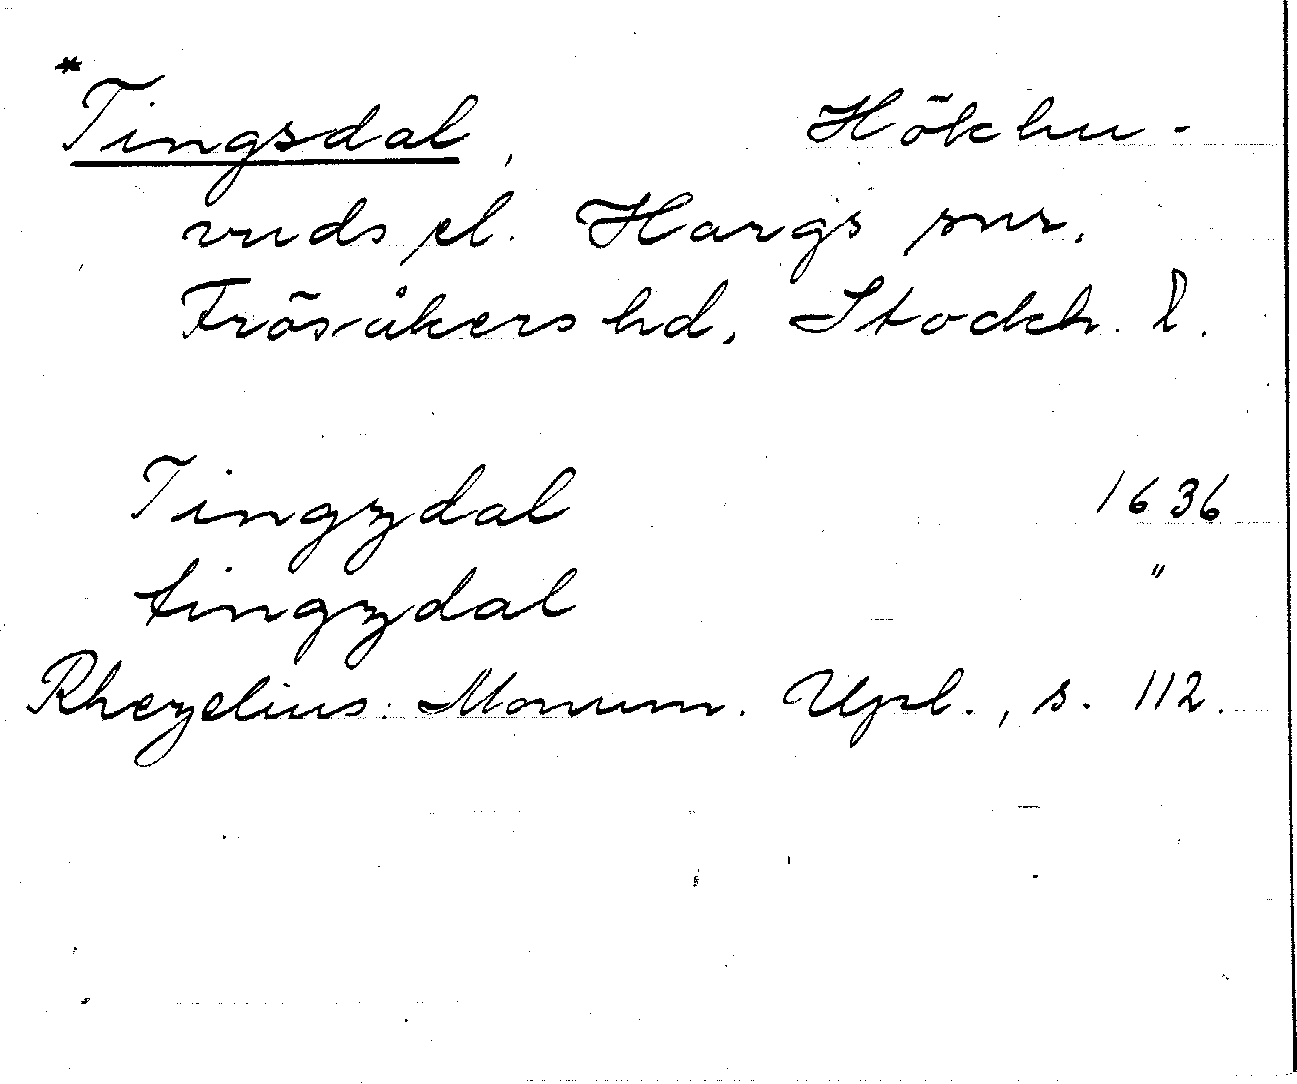 *
Tingsdal, Hökhu-
vuds el. Hargs snr,
Frösåkers hd, Stockh. l.
Tingzdal 1636
tingzdal "
Rhezelius: Monum. Upl., s. 112.